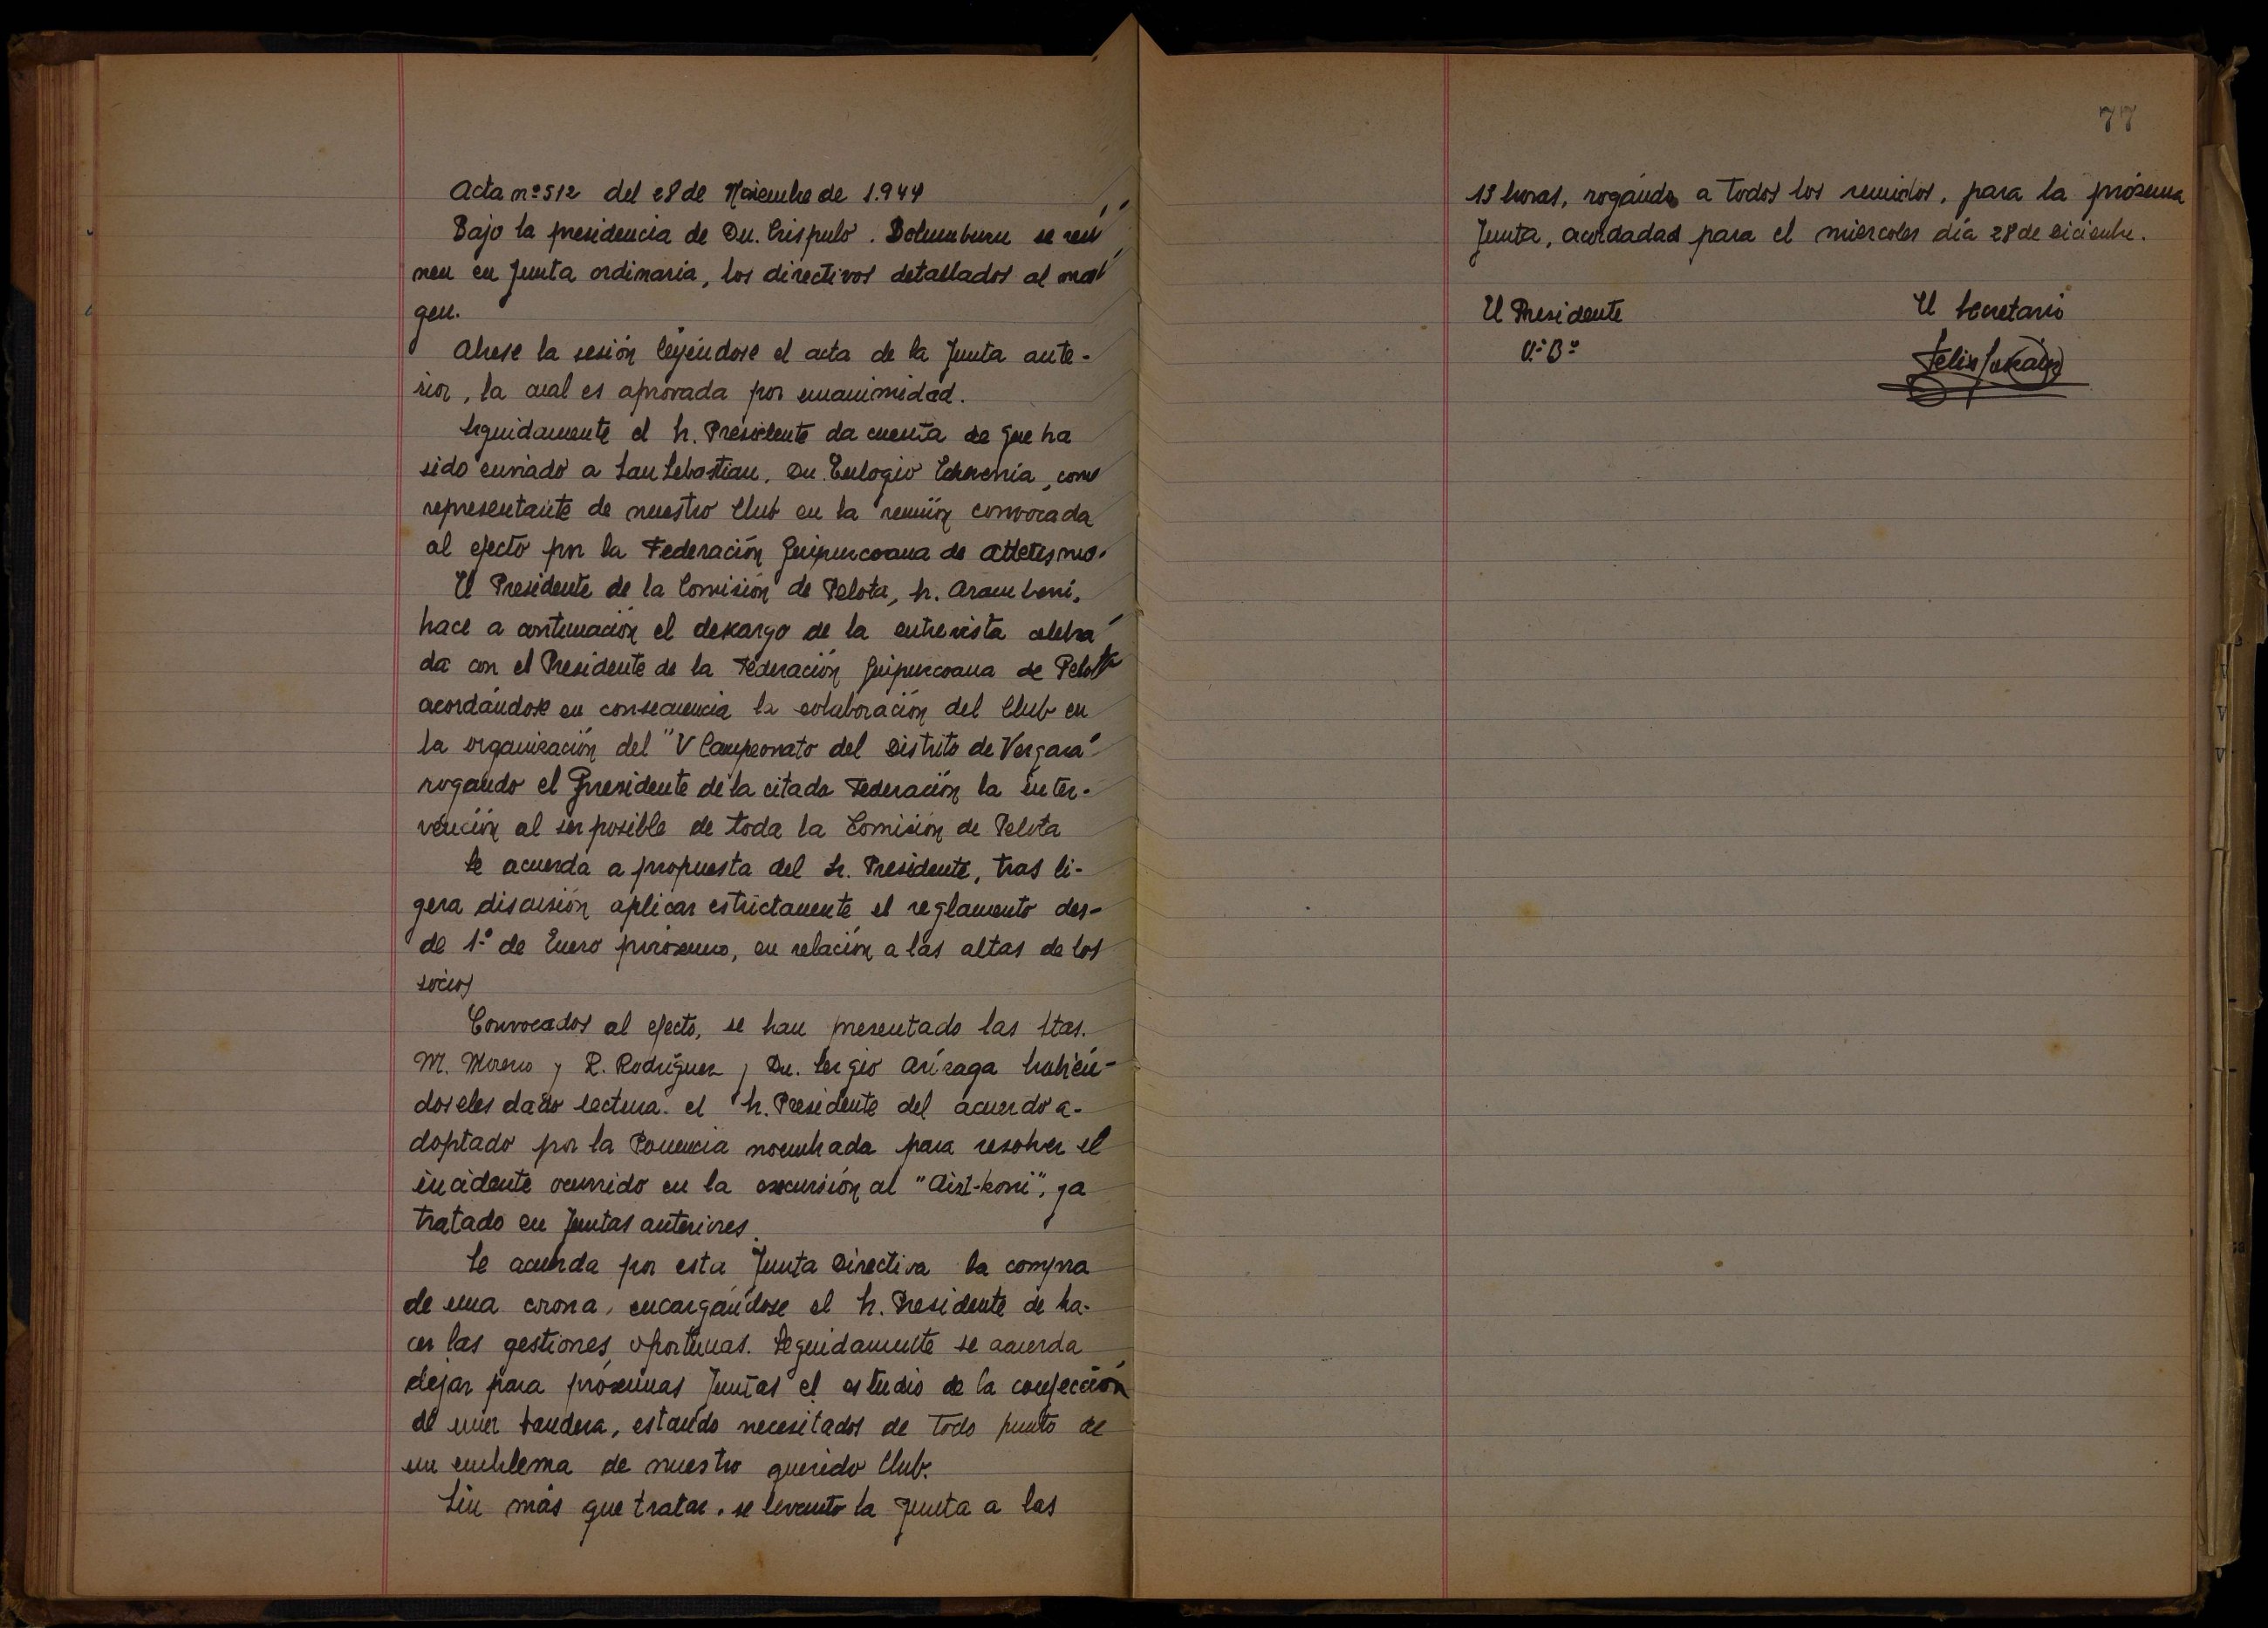 Acta nº 512 del 28 de Noviembre de 1.944
Bajo la presidencia de Dn. Crispulo. Dolumburu se reú
nen en Junta ordinaria, los directivos detallados al mar
gen.
Abrese la sesión leyéndose el acta de la Junta ante-
rior, la cual es aprovada por unanimidad.
Seguidamente el Sr. Presidente da cuenta de que ha
sido enviado a San Sebastian, Dn. Eulogio Echeverria, como
representante de nuestro Club en la reunión convocada
al efecto por la Federación Guipuzcoana de Atletismo.
El Presidente de la Comisión de Pelota, Sr. Aramberri,
hace a continuación el descargo de la entrevista celebra
da con el Presidente de la Federación Guipuzcoana de Pelota
acordándose en consecuencia la colaboración del Club en
la organización del "V Campeonato del Distrito de Vergara"
rogando el Presidente de la citada Federación la inter-
vención al ser posible de toda la Comisión de Pelota
Se acuerda a propuesta del Sr. Presidente, tras li-
gera discusión aplicar estrictamente el reglamento des-
de 1º de Enero próximo, en relación a las altas de los
socios
Convocados al efecto, se han presentado las Stas.
M. Moreno y R. Rodríguez y Dn. Sergio Arízaga habién-
doseles dado lectura el Sr. Presidente del acuerdo a-
doptado por la Ponencia nombrada para resolver el
incidente ocurrido en la excursión al "Aizt-korri", ya
tratado en Juntas anteriores.
Se acuerda por esta Junta Directiva la compra
de una corona, encargándose el Sr. Presidente de ha-
cer las gestiones oportunas. Seguidamente se acuerda
dejar para próximas Juntas el estudio de la confección
de una bandera, estando necesitados de todo punto de
un emblema de nuestro querido Club.
Sin más que tratar, se levanto la Junta a las
77
13 horas, rogándo a todos los reunidos, para la próxima
Junta, acordadad para el miercoles día 28 de Diciembre.
El Presidente
El Secretario
Vº Bº
Felix